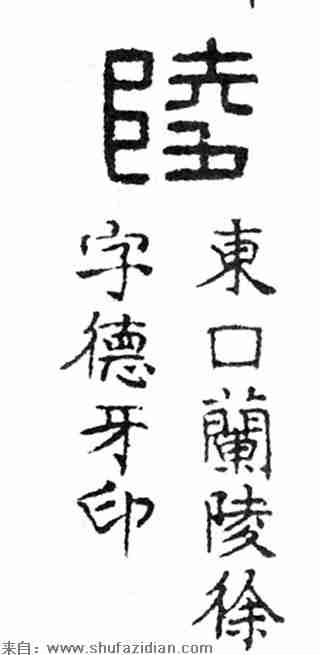 陵
東□蘭陵徐
字德牙印
来自：www.shufazidian.com